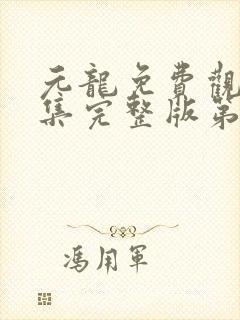 元龍免費觀
集完整版第
馮用軍